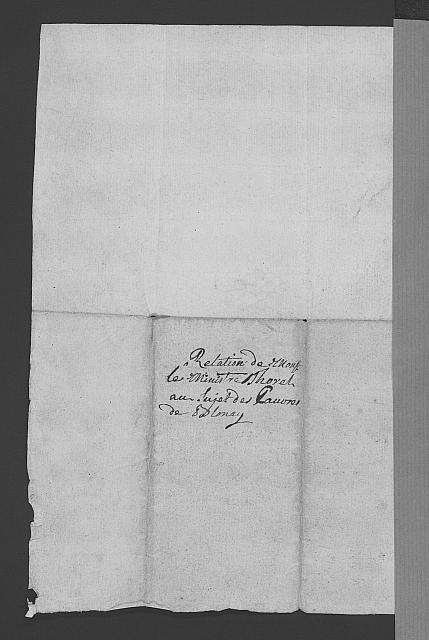 Relation de Mons.
le Ministre Thorel
au Sujet des Pauvres
de Blonay